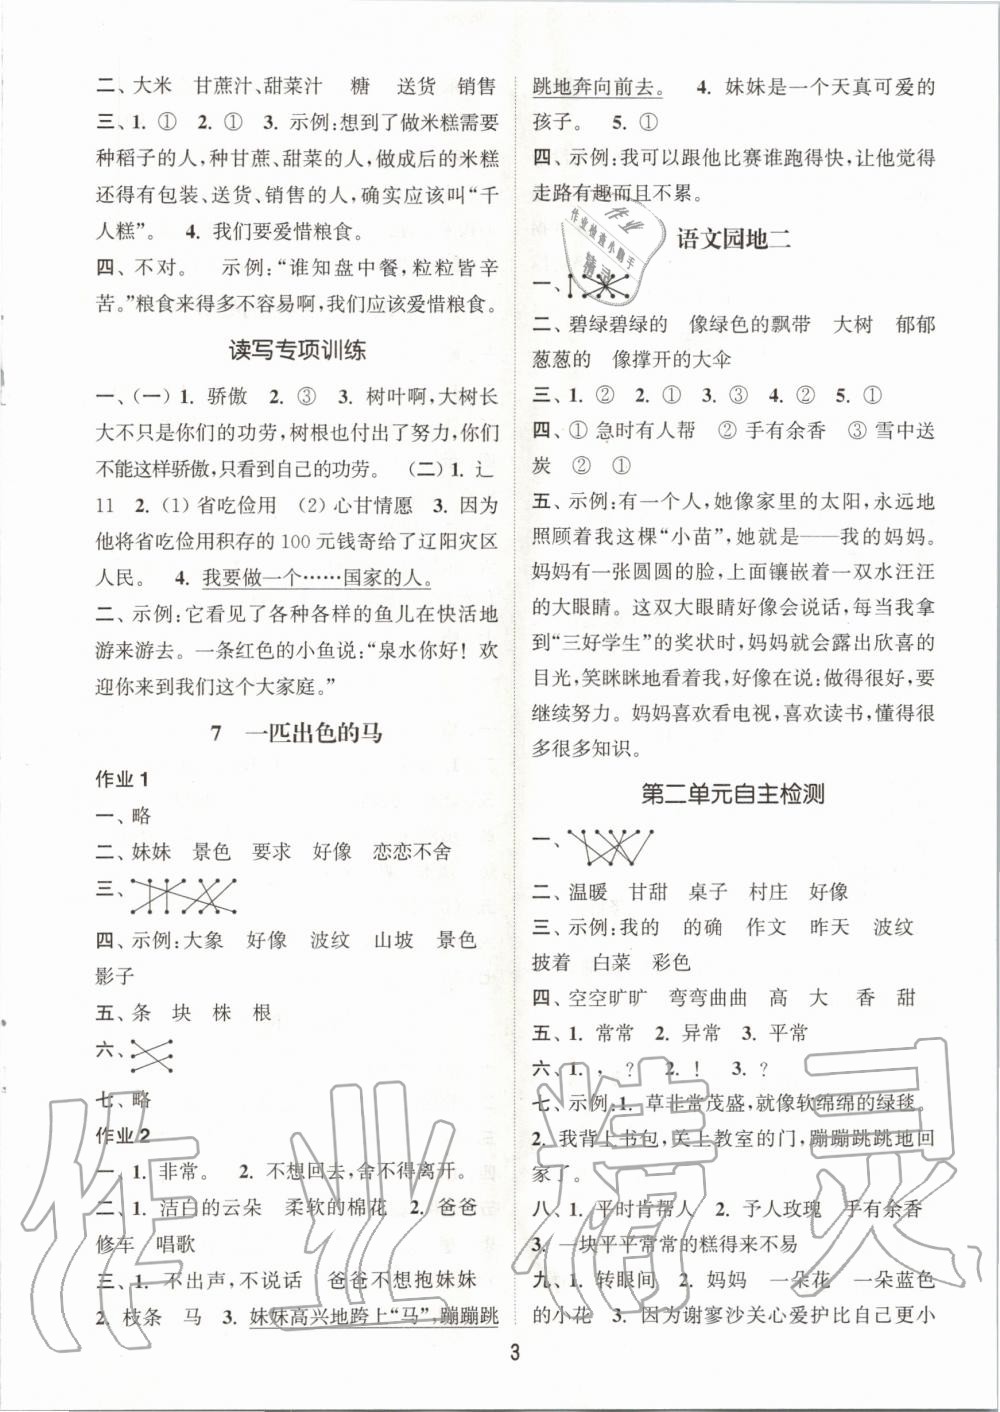 二、大米　甘蔗汁、甜菜汁　糖　送货　销售
三、1. ①　2. ①　3. 示例:想到了做米糕需要
种稻子的人,种甘蔗、甜菜的人,做成后的米糕
还得有包装、送货、销售的人,确实应该叫“千
人糕”。　4. 我们要爱惜粮食。
四、不对。　示例:“谁知盘中餐,粒粒皆辛
苦。”粮食来得多不容易啊,我们应该爱惜粮食。
读写专项训练
一、(一) 1. 骄傲　2. ③　3. 树叶啊,大树长
大不只是你们的功劳,树根也付出了努力,你们
不能这样骄傲,只看到自己的功劳。　(二) 1. 辶
11　2. (1) 省吃俭用　(2) 心甘情愿　3. 因为
他将省吃俭用积存的 100 元钱寄给了辽阳灾区
人民。　4. 我要做一个……国家的人。
二、示例:它看见了各种各样的鱼儿在快活地
游来游去。一条红色的小鱼说:“泉水你好！欢
迎你来到我们这个大家庭。”
7　一匹出色的马
作业 1
一、略
二、妹妹　景色　要求　好像　恋恋不舍
三、
四、示例:大象　好像　波纹　山坡　景色
影子
五、条　块　株　根
六、
七、略
作业 2
一、1. 非常。　2. 不想回去,舍不得离开。
二、1. 洁白的云朵　柔软的棉花　2. 爸爸
修车　唱歌
三、1. 不出声,不说话　爸爸不想抱妹妹
2. 枝条　马　3. 妹妹高兴地跨上“马”,蹦蹦跳
跳地奔向前去。　4. 妹妹是一个天真可爱的
孩子。　5. ①
四、示例:我可以跟他比赛谁跑得快,让他觉得
走路有趣而且不累。
语文园地二
一、
二、碧绿碧绿的　像绿色的飘带　大树　郁郁
葱葱的　像撑开的大伞
三、1. ②　2. ①　3. ③　4. ②　5. ①
四、① 急时有人帮　② 手有余香　③ 雪中送
炭　②　①
五、示例:有一个人,她像家里的太阳,永远地
照顾着我这棵“小苗”,她就是——我的妈妈。
妈妈有一张圆圆的脸,上面镶嵌着一双水汪汪
的大眼睛。这双大眼睛好像会说话,每当我拿
到“三好学生”的奖状时,妈妈就会露出欣喜的
目光,笑眯眯地看着我,好像在说:加油啊,要
继续努力。妈妈喜欢看电视,喜欢读书,懂得很
多很多知识。
第二单元自主检测
一、
二、温暖　甘甜　桌子　村庄　好像
三、示例:我的　的确　作文　昨天　波纹
披着　白菜　彩色
四、空空旷旷　弯弯曲曲　高　大　香　甜
五、1. 常常　2. 异常　3. 平常
六、1. ，　？　2. ！　3. ？
七、示例:1. 草非常茂盛,就像软绵绵的绿毯。
2. 我背上书包,关上教室的门,蹦蹦跳跳地回
家了。
八、1. 平时肯帮人　2. 予人玫瑰　手有余香
3. 一块平平常常的糕得来不易
九、1. 转眼间　2. 妈妈　一朵花　一朵蓝色
的小花　3. 因为谢寥沙关心爱护比自己更小
3
作业
作业检查小助手
精灵
作业精灵